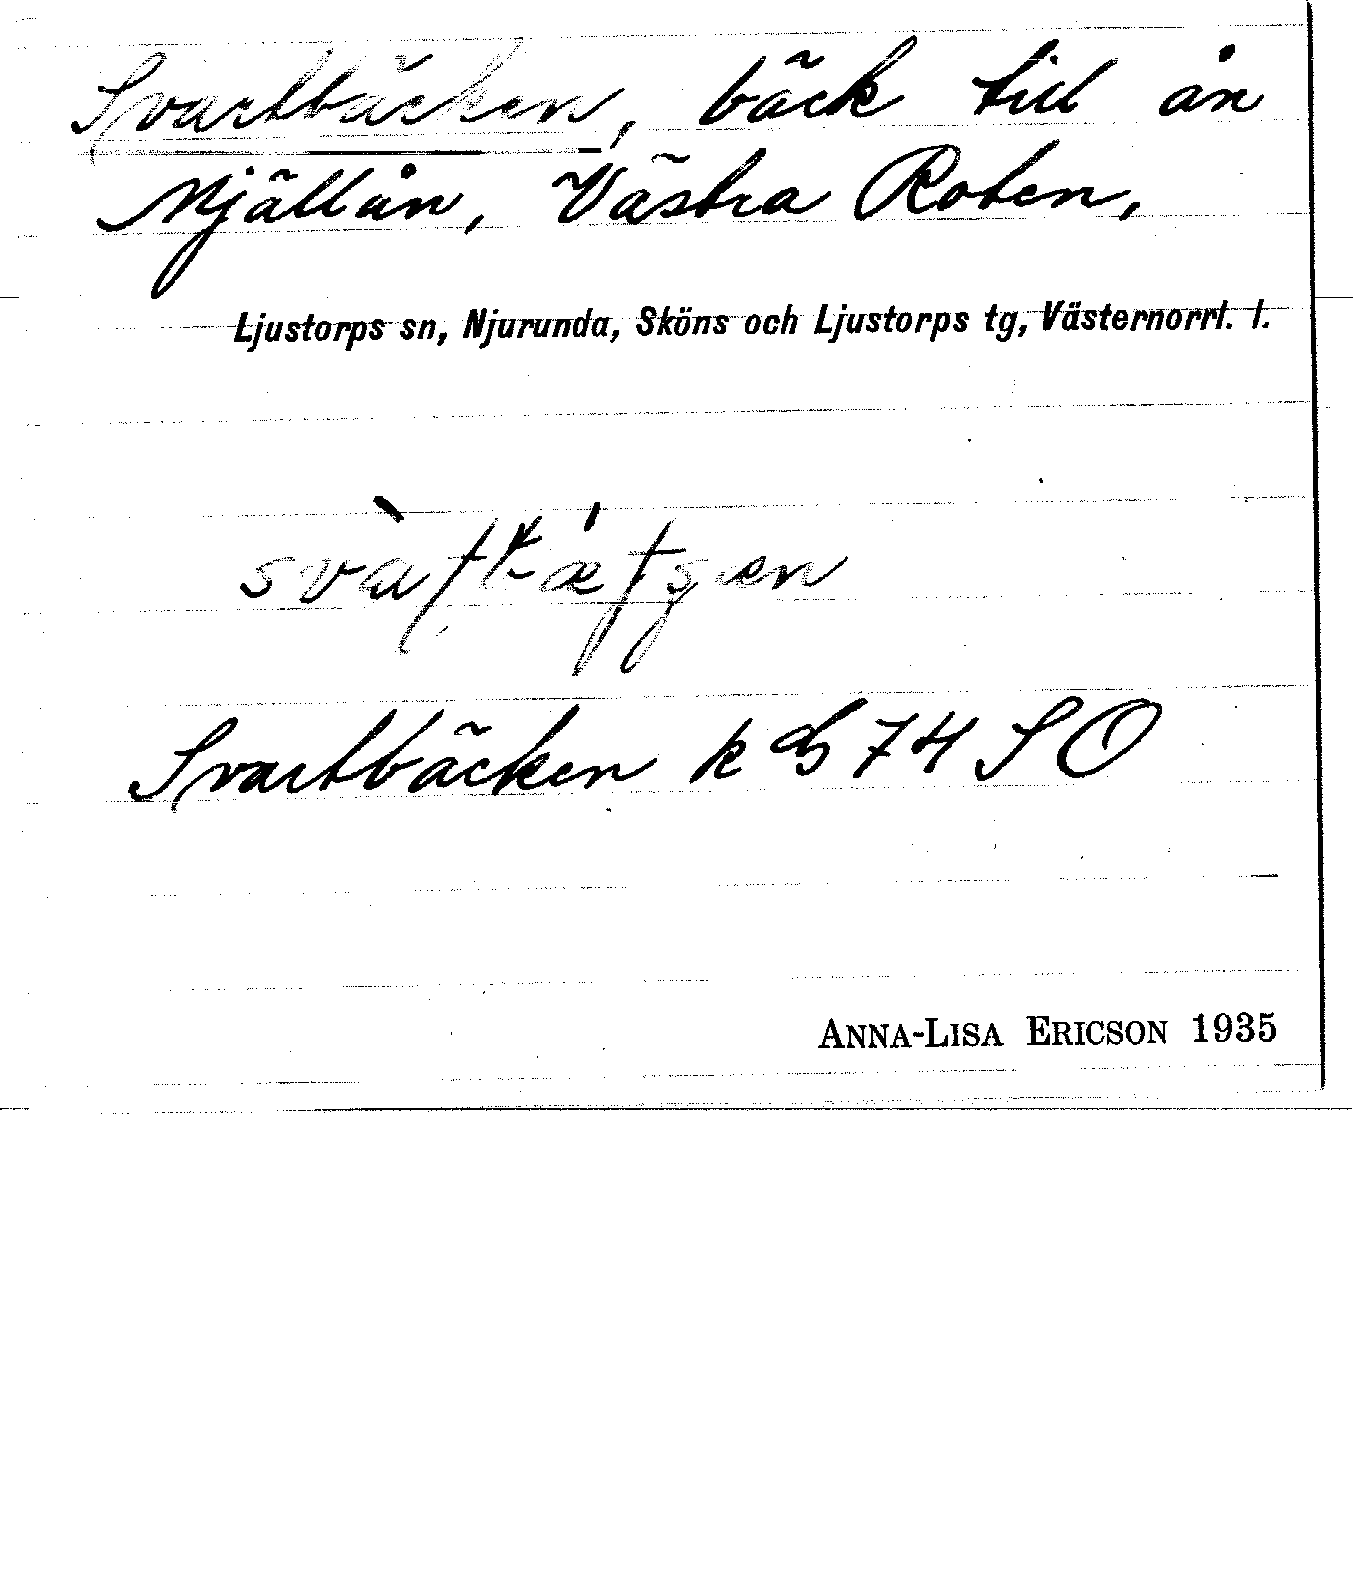 Svartbäcken, bäck till ån
Mjällån, Västra Roten,
Ljustorps sn, Njurunda, Sköns och Ljustorps tg, Västernorrl. l.
Svartbäcken k ds 74 SO
ANNA-LISA ERICSON 1935